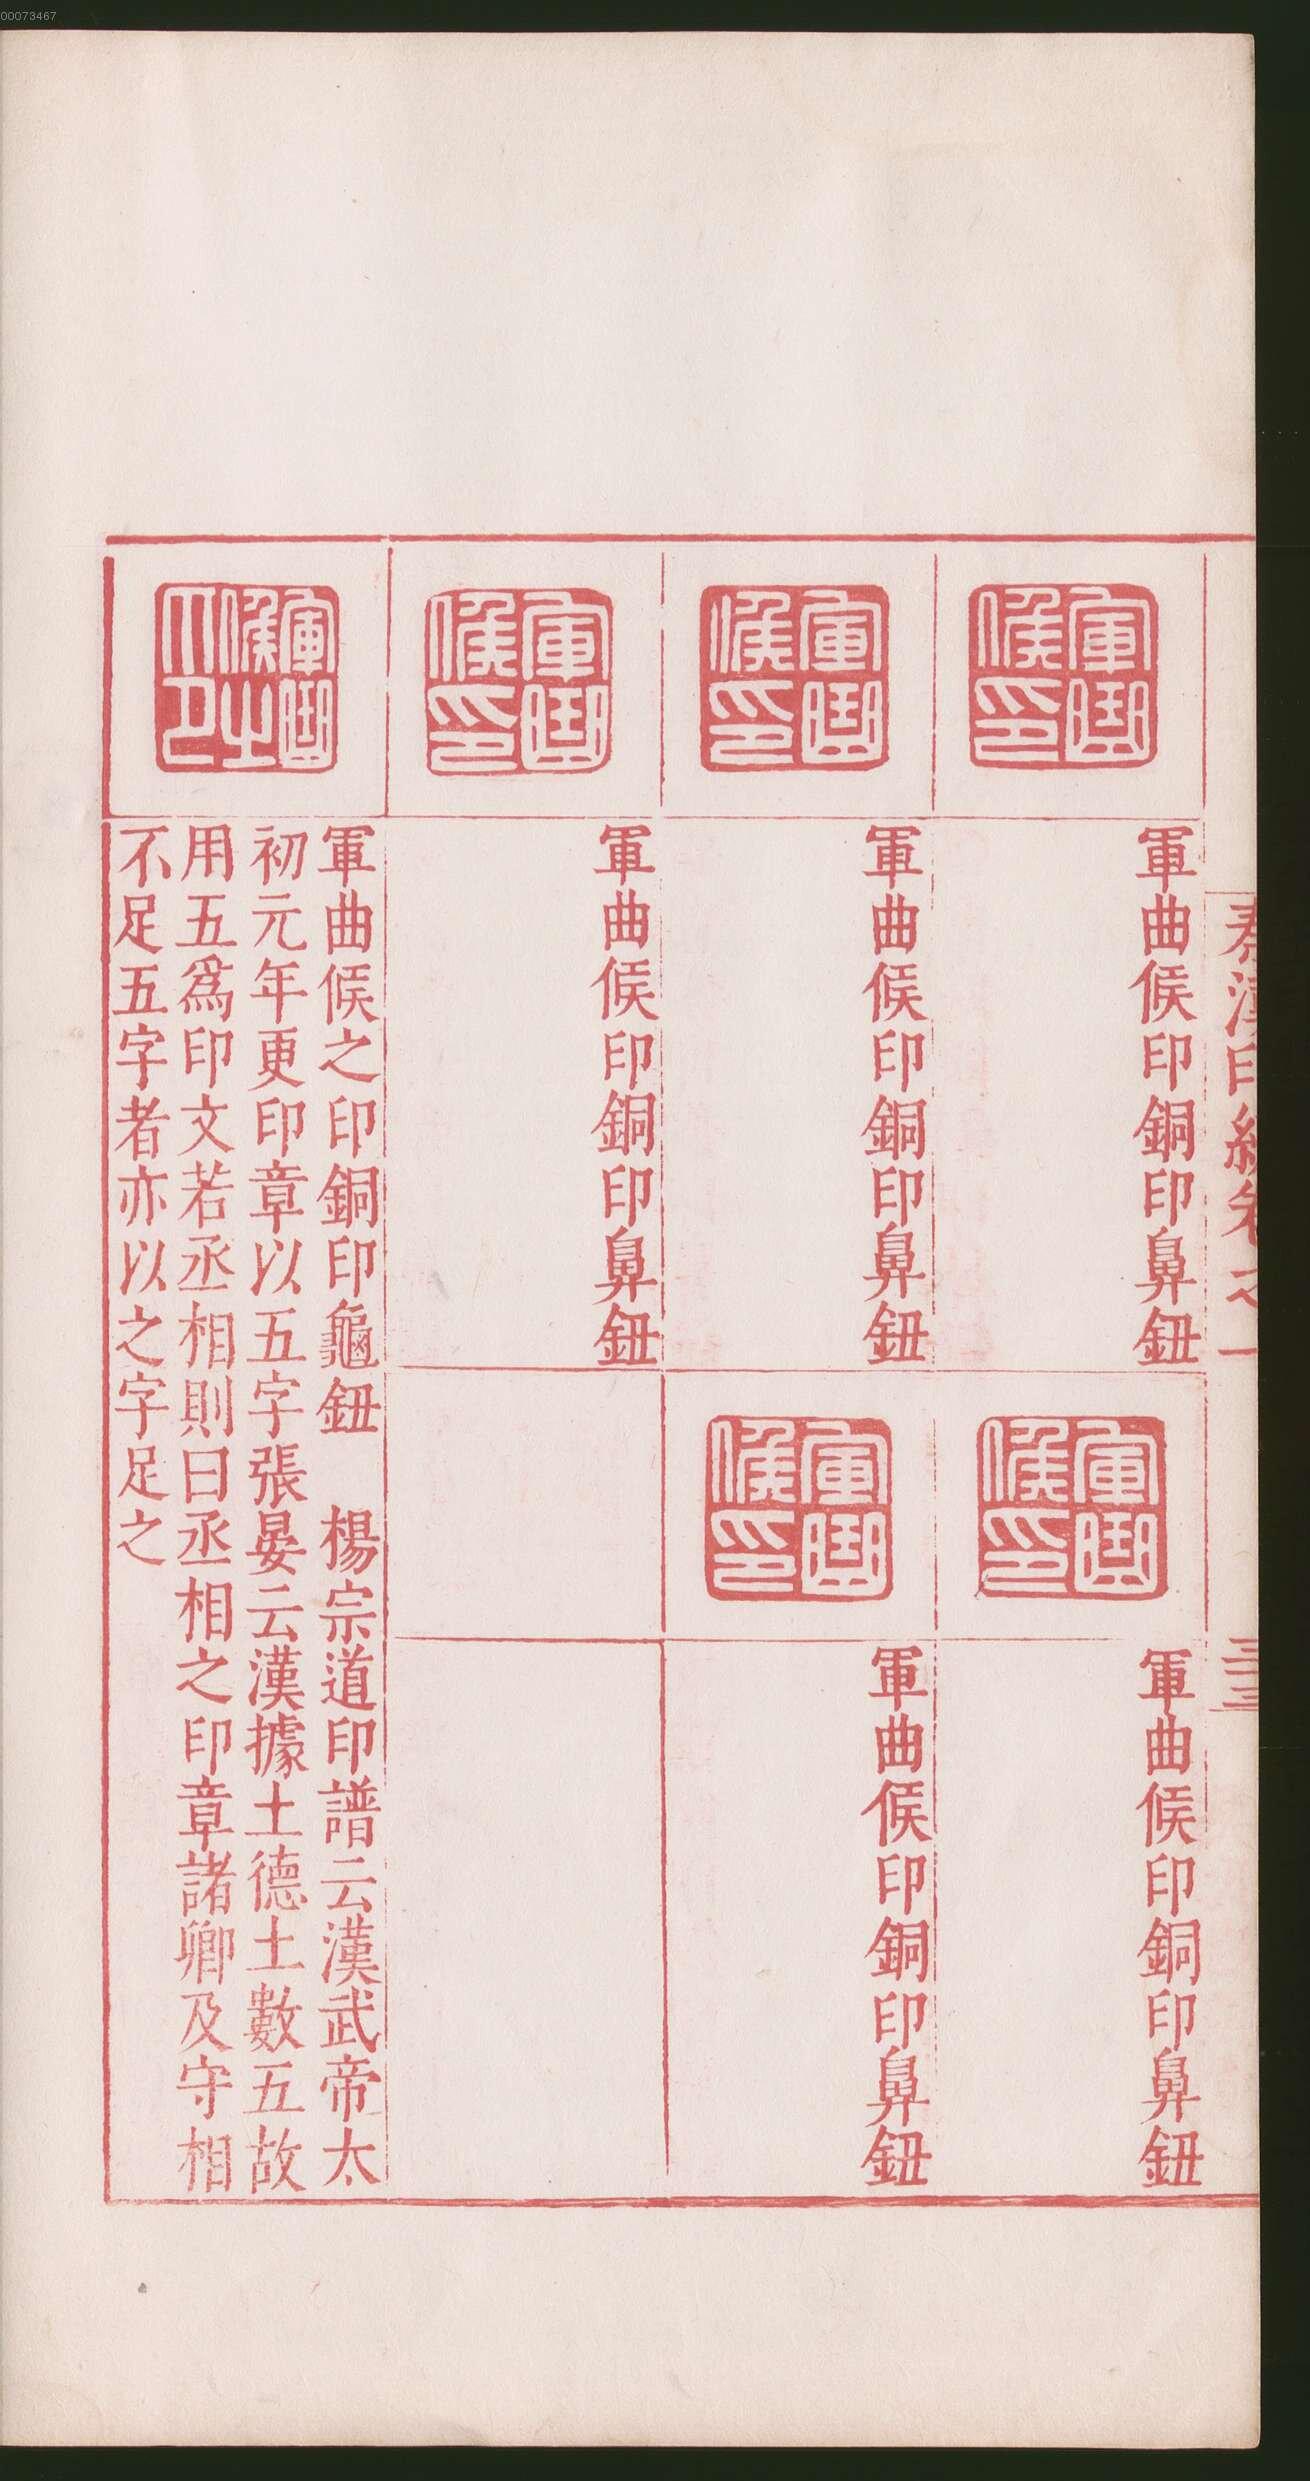 00073467
秦漢印統卷之一
三十三
軍曲候印
軍曲候印銅印鼻鈕
軍曲候印
軍曲候印銅印鼻鈕
軍曲候印
軍曲候印銅印鼻鈕
軍曲候印
軍曲候印銅印鼻鈕
軍曲候印
軍曲候印銅印鼻鈕
軍曲候之印
軍曲候之印銅印龜鈕　楊宗道印譜云漢武帝太
初元年更印章以五字張晏云漢據土德土數五故
用五爲印文若丞相則曰丞相之印章諸卿及守相
不足五字者亦以之字足之